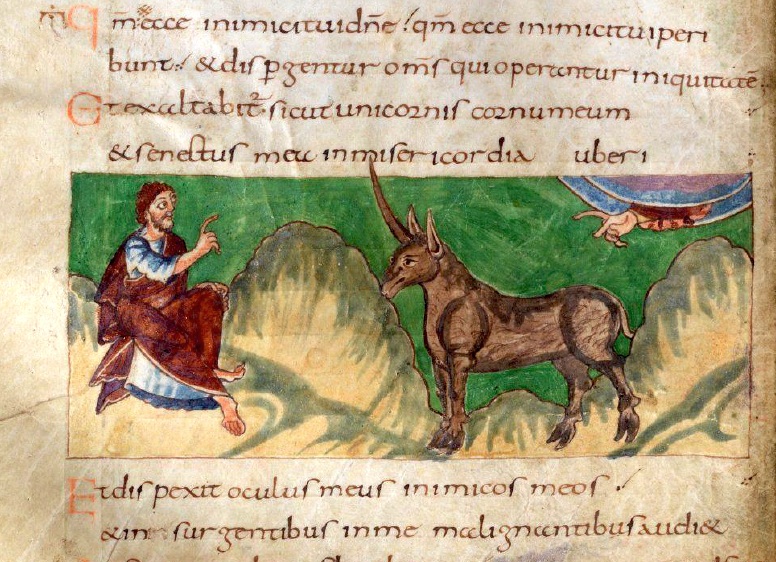 Qm̅ ecce inimici tui dn̅e qm̅ ecce inimici tui peri
bunt & dispergentur om̅s qui operantur iniquitatē
Et exaltabit̄ sicut unicornis cornu meum
& senectus mea in misericordia uberi
Et dispexit oculus meus inimicos meos
& in surgentibus in me malignantibus audi&